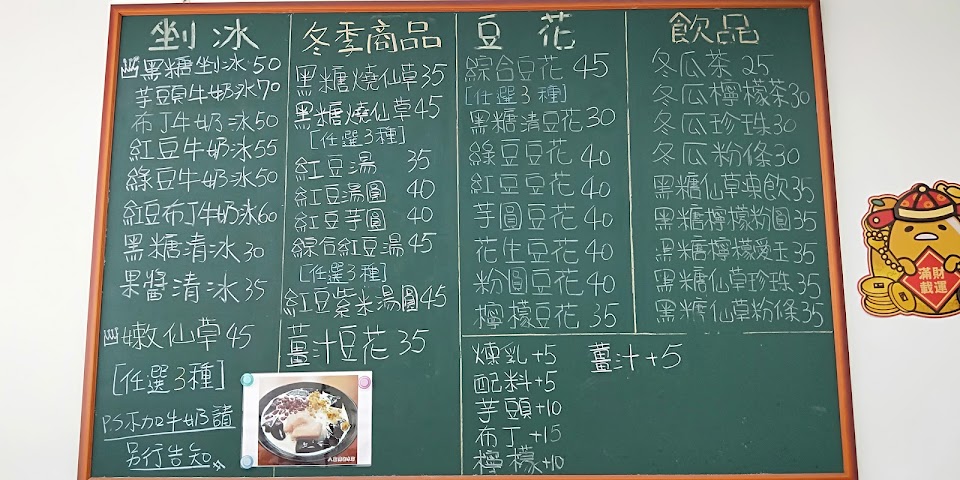 剉冰
黑糖剉冰 50
芋頭牛奶冰70
布丁牛奶冰50
紅豆牛奶冰55
綠豆牛奶冰50
紅豆布丁牛奶冰60
黑糖清冰 30
果醬清冰 35
嫩仙草 45
[任選3種]
PS不加牛奶請
另行告知
冬季商品
黑糖燒仙草35
黑糖燒仙草45
[任選3種]
紅豆湯 35
紅豆湯圓 40
紅豆芋圓 40
綜合紅豆湯45
[任選3種]
紅豆紫米湯圓45
薑汁豆花 35
豆花
綜合豆花 45
[任選3種]
黑糖清豆花30
綠豆豆花 40
紅豆豆花 40
芋圓豆花 40
花生豆花 40
粉圓豆花 40
檸檬豆花 35
飲品
冬瓜茶 25
冬瓜檸檬茶30
冬瓜珍珠30
冬瓜粉條30
黑糖仙草凍飲35
黑糖檸檬粉圓35
黑糖檸檬愛玉35
黑糖仙草珍珠35
黑糖仙草粉條35
煉乳+5
配料+5
芋頭+10
布丁+15
檸檬+10
薑汁+5
財運
滿載